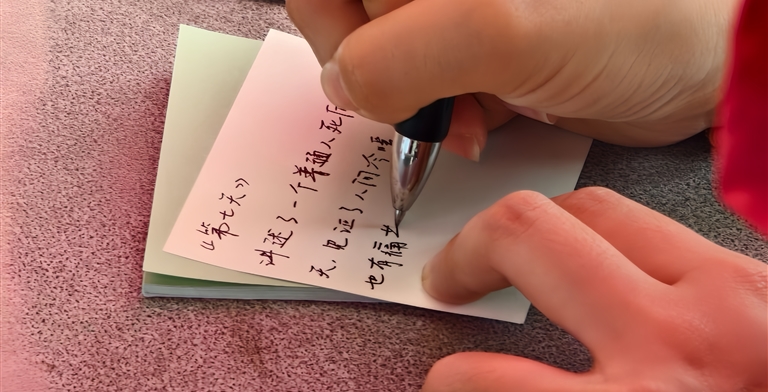 《第七天》
讲述了一个普通人死后
天，见证了人间冷暖
也有痛苦